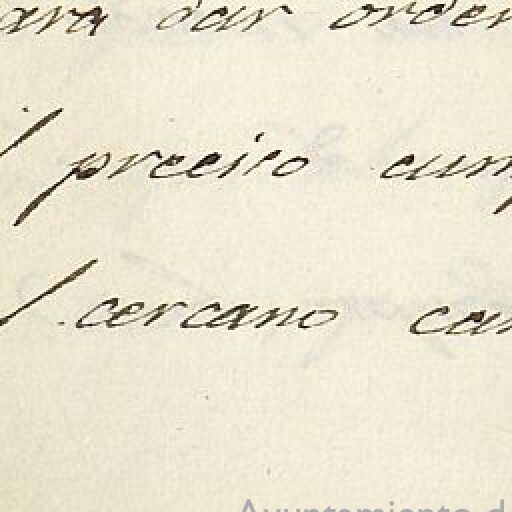 ara dar orden
preciso cum
cercano can
Ayuntamiento d